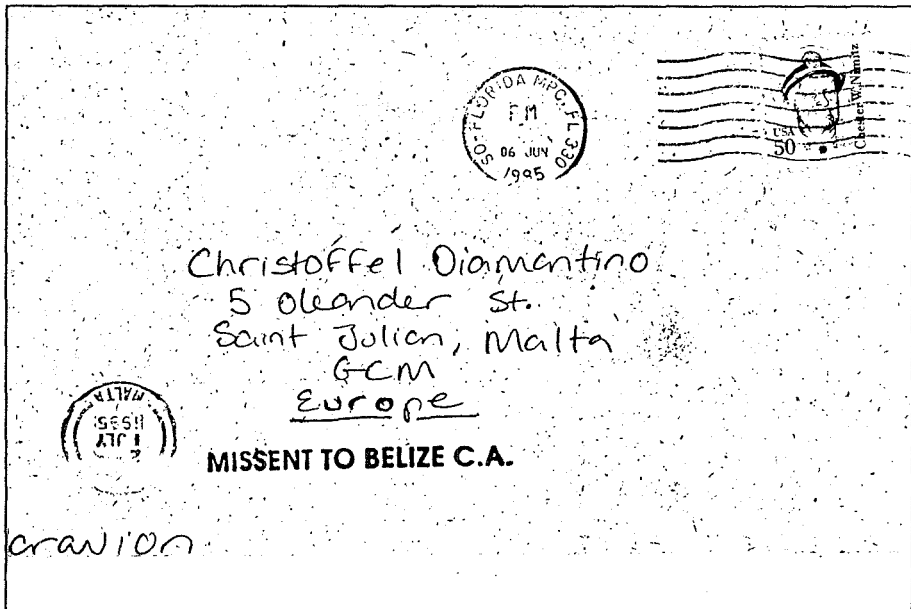 SO. FLORIDA MPC, FL 330
PM
06 JUN
1995
Chester W. Nimitz
USA
50
Christoffel Diamantino
5 Oleander St.
Saint Julian, Malta
GCM
Europe
MALTA
JULY
1995
MISSENT TO BELIZE C.A.